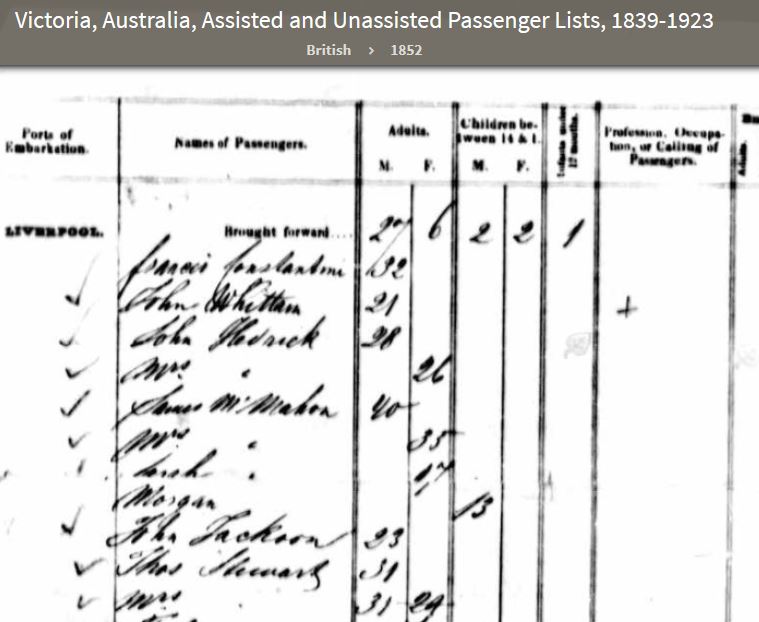 Victoria, Australia, Assisted and Unassisted Passenger Lists, 1839-1923
British > 1852
Ports of Embarkation. Names of Passengers. Adults. M. F. Children between 14 & 1. M. F. Infants under 12 months. Profession, Occupation, or Calling of Passengers. Adults.
LIVERPOOL. Brought forward.... 27 6 2 2 1
Francis Constantini 32
John Whittam 21 +
John Hedrick 28
Mrs " 26
James McMahon 40
Mrs " 35
Sarah " 17
Morgan 13
John Jackson 23
Thos Stewart 31
Mrs 31 29